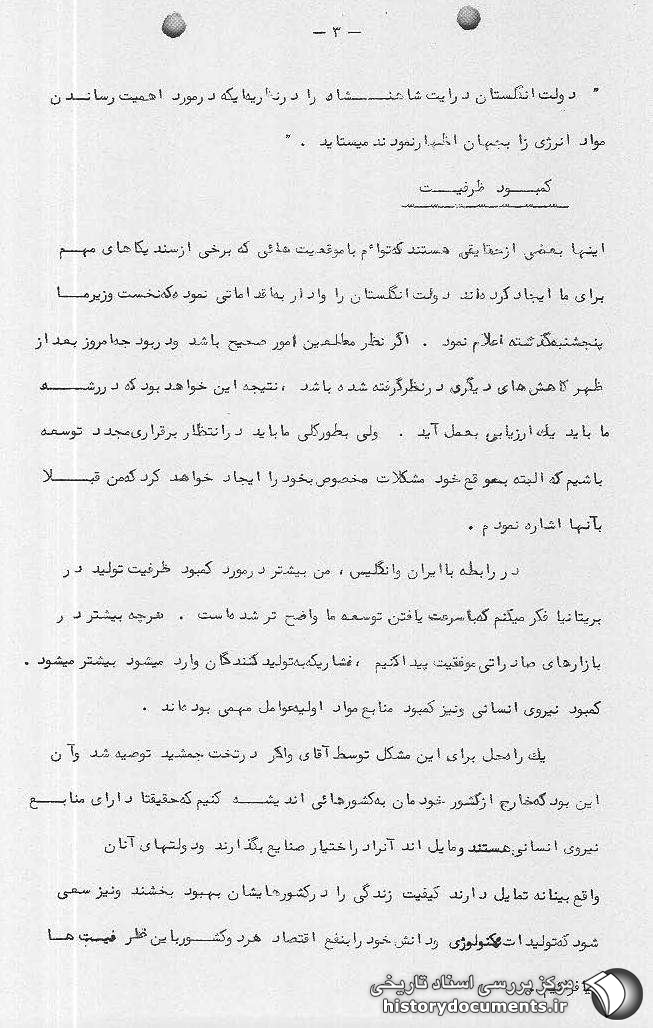 — ۳ —
" دولت انگلستان درایت شاهنشاه را درنظریه‌ایکه درمورد اهمیت رساندن
مواد انرژی زا بجهان اظهارنمودند میستاید . "
کمبود ظرفیت
اینها بعضی ازحقایقی هستند که توأم باموقعیت هائی که برخی ازسندیکاهای مهم
برای ما ایجاد کرده‌اند دولت انگلستان را وادار به‌اقداماتی نموده که‌نخست وزیرما
پنجشنبه‌گذشته اعلام نمود . اگر نظر مطلعین امور صحیح باشد ودربودجه‌امروز بعد از
ظهر کاهش های دیگری درنظرگرفته شده باشد ، نتیجه این خواهد بود که دررشته
ما باید یك ارزیابی بعمل آید . ولی بطورکلی ماباید درانتظار برقراری‌مجدد توسعه
باشیم که البته بموقع خود مشکلات مخصوص بخود را ایجاد خواهد کرد که‌من قبلا
بآنها اشاره نمودم .
در رابطه باایران وانگلیس ، من بیشتر درمورد کمبود ظرفیت تولید در
بریتانیا فکر میکنم که‌باسرعت یافتن توسعه ما واضح تر شده‌است . هرچه بیشتر در
بازارهای صادراتی موفقیت پیداکنیم ، فشاریکه‌به‌تولیدکنندگان وارد میشود بیشتر میشود .
کمبود نیروی انسانی ونیز کمبود منابع مواد اولیه‌عوامل مهمی بوده‌اند .
یك راه‌حل برای این مشکل توسط آقای واکر درتخت جمشید توصیه شد وآن
این بود که‌خارج ازکشور خودمان به‌کشورهائی اندیشه کنیم که‌حقیقتا دارای منابع
نیروی انسانی هستند ومایل اند آنرا دراختیار صنایع بگذارند ودولتهای آنان
واقع بینانه تمایل دارند کیفیت زندگی را درکشورهایشان بهبود بخشند ونیز سعی
شود که‌تولیدات تکنولوژی ودانش خود را بنفع اقتصاد هردوکشورباین نظر قیمت ها
مرکز بررسی اسناد تاریخی
historydocuments.ir